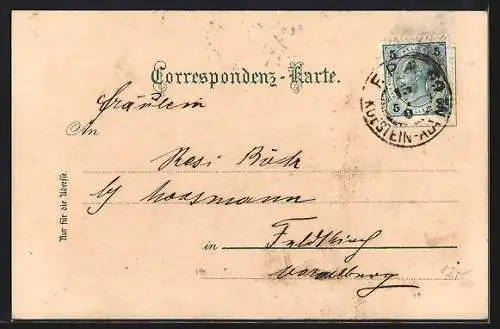 Correspondenz-Karte.
5 5
5 5
KUFSTEIN-A
Fräulein
An
Resi
by Moosmann
in Feldkirch
Vorarlberg
Nur für die Adresse.